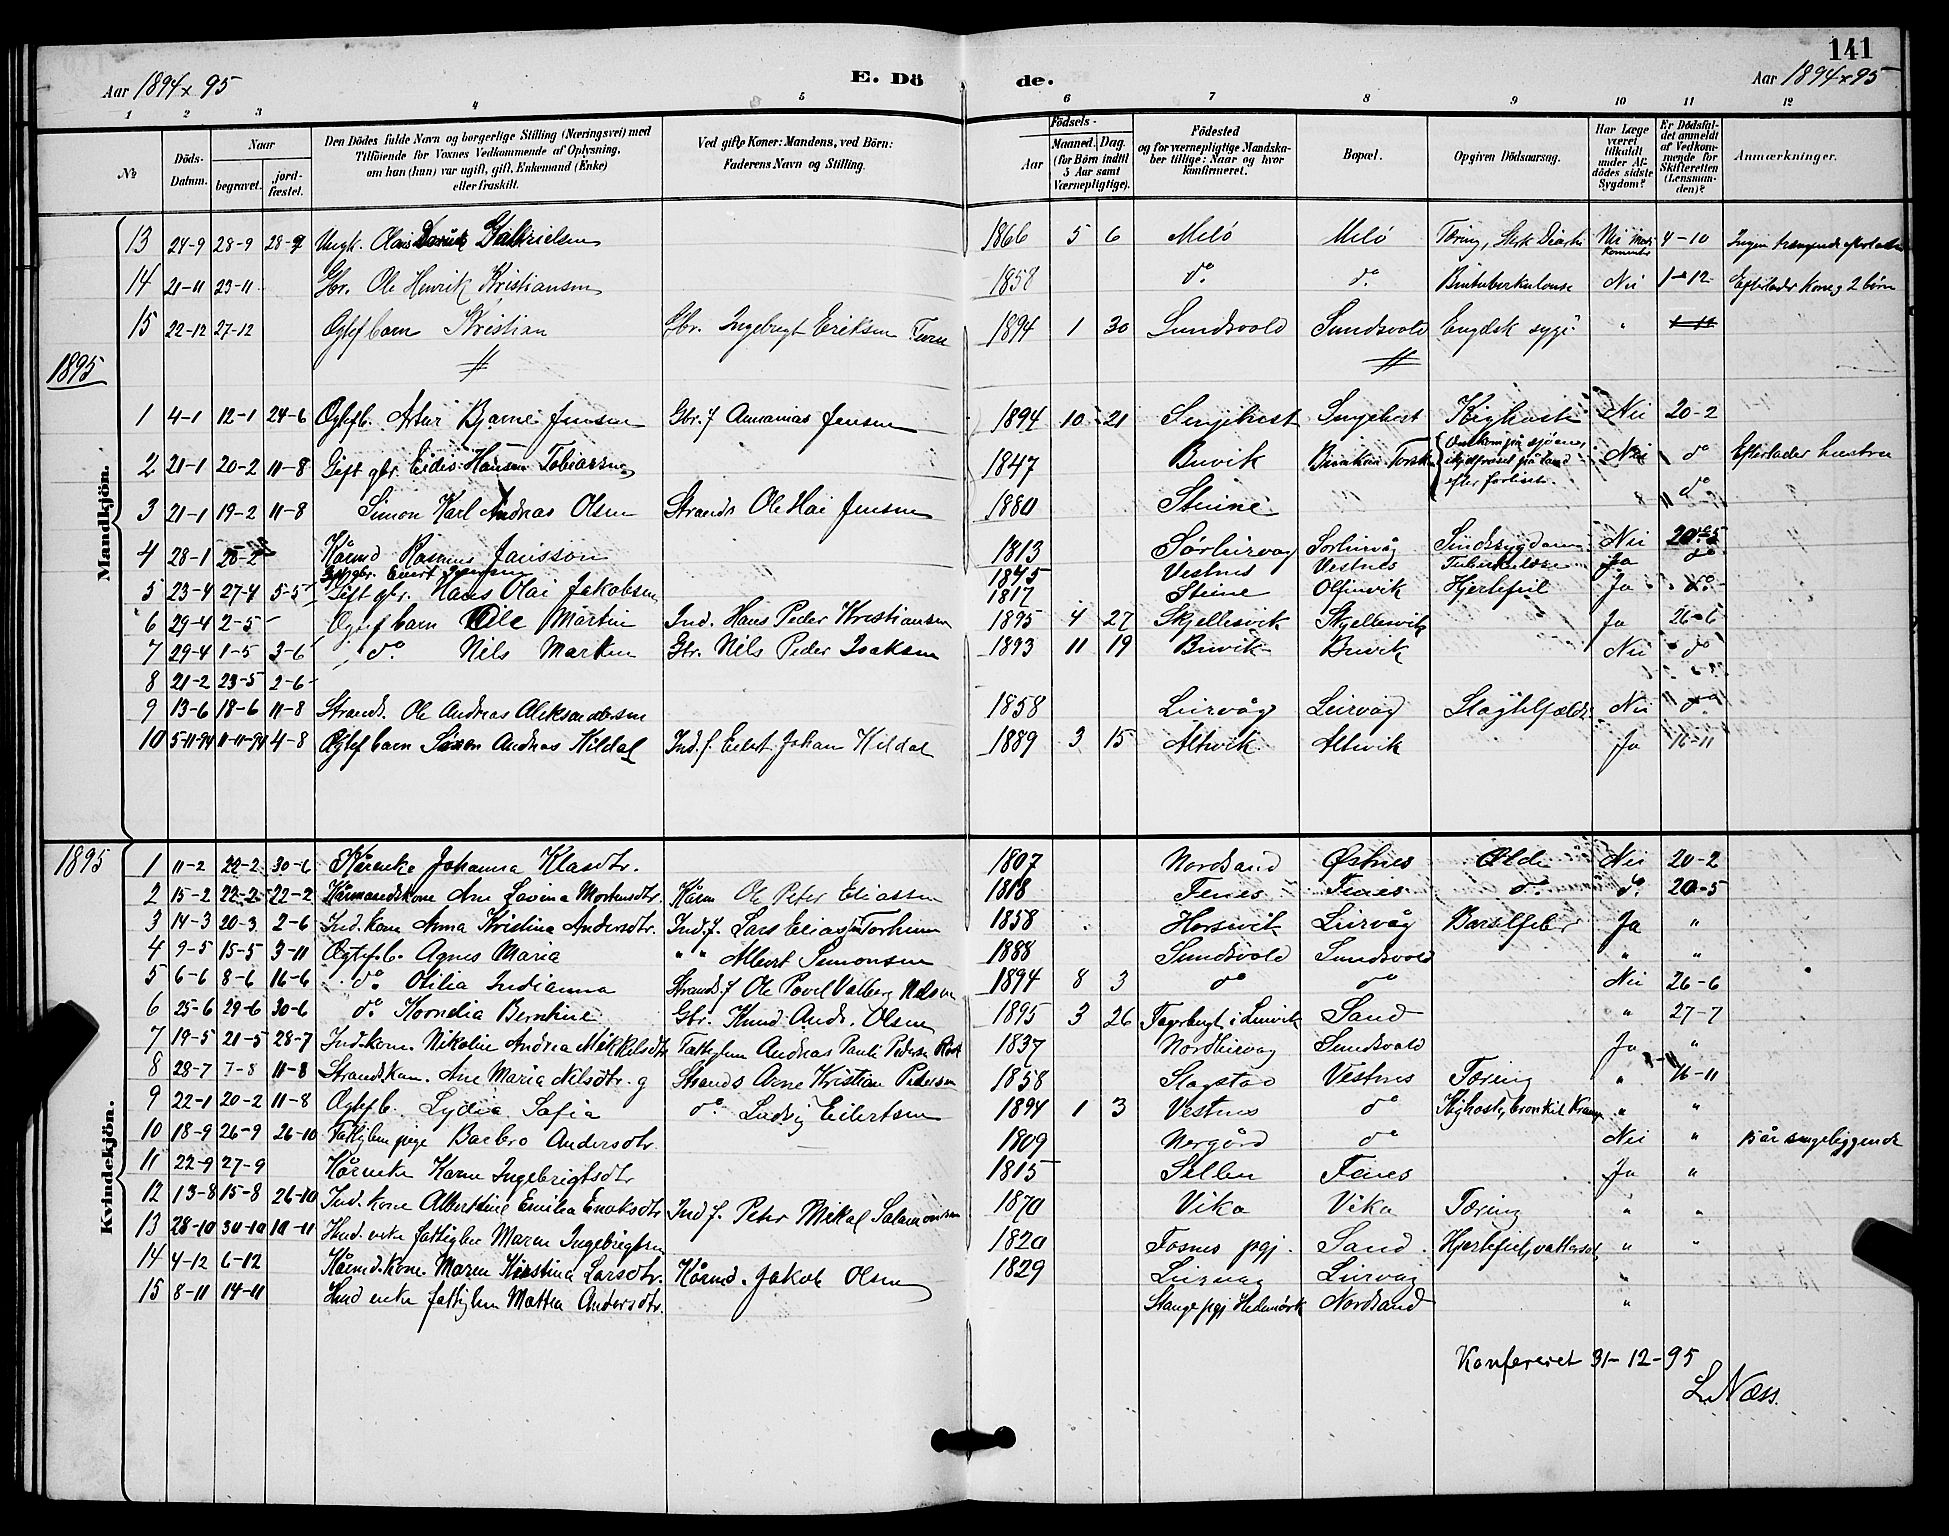 141
Aar 1894 x 95 E. Dö de. Aar 1894 x 95
1 2 3 4 5 6 7 8 9 10 11 12
No Döds-Datum. Naar begravet. jordfæstet. Den Dödes fulde Navn og borgerlige Stilling (Næringsvei) med Tilföiende for Voxnes Vedkommende af Oplysning, om han (hun) var ugift, gift, Enkemand (Enke) eller fraskilt. Ved gifte Koner: Mandens, ved Börn: Faderens Navn og Stilling. Födsels- Aar Maaned. Dag. (for Börn indtil 5 Aar samt Værnepligtige). Födested og for værnepligtige Mandskaber tillige: Naar og hvor konfirmeret. Bopæl. Opgiven Dödsaarsag. Har Læge været tilkaldt under Afdödes sidste Sygdom? Er Dödsfaldet anmeldt af Vedkommende for Skifteretten (Lensmanden)? Anmærkninger.
Mandkjön.
13 24-9 28-9 28-9 Ungk. Olais Gabrielsen 1866 5 6 Melö Melö Tæring, Nei 4-10 Ingen
14 21-11 23-11 Gbr. Ole Henrik Kristiansen 1858 do do Nei 1-12 Efterlader kone og 2 börn
15 22-12 27-12 Ogtef barn Kristian Gbr. Ingebrigt Eriksen 1894 1 30 Sundsvold Sundsvold Engelsk syge " 1-11
1895
1 4-1 12-1 24-6 Ogtefb. Artur Bjarne Jensen Gbr. f Annanias Jensen 1894 10 21 Senjehest Senjehest Kighoste Nei 20-2
2 21-1 20-2 11-8 Gift gbr. Eidis Hansen Tobiassen 1847 Buvik Omkom på sjøen, ihjelfrøset på land efter forliset. Nei do Efterlader hustru
3 21-1 19-2 11-8 Simon Karl Andreas Olsen Strands Ole Hai Jensen 1880 Steine " do
4 28-1 28-2 Kårmd Rasmus Jansson 1813 Sørleirvåg Sorleirvåg Sindssygdom Nei 20-5
Gift gbr. Eilert Jensen 1845 Vestnes Vestnes Tuberkulose Ja do
5 23-4 27-4 5-5 Gift gbr. Hans Olai Jakobsen 1817 Steine Olfinvik Hjertefeil Ja do
6 29-4 2-5 Ogtef barn Ole Martin Ind. Hans Peder Kristiansen 1895 4 27 Skjellesvik Skjellesvik Ja 26-6
7 29-4 1-5 3-6 do Nils Marken Gbr. Nils Peder Isaksen 1893 11 19 Buvik Buvik Nei do
8 21-2 23-5 2-6
9 13-6 18-6 11-8 Strands. Ole Andreas Aleksandersen 1858 Leirvåg Leirvåg Slagtilfælde Nei do
10 5-11-94 11-11-94 4-8 Ogtef barn Simon Andreas Kildal Ind. f. Eilert Johan Kildal 1889 3 15 Altvik Altvik Ja 16-11
Kvindekjön.
1895 1 11-2 22-2 30-6 Kårenke Johanna Klasdtr. 1807 Nordsand Østnes Ælde Nei 20-2
2 15-2 22-2 22-2 Kårmandskone Ane Lovina Mortensdtr. Kårm Ole Peter Eliassen 1818 Fenes Fenes do do 20-5
3 14-3 20-3 2-6 Ind. kone Anna Kristina Andersdtr. Ind. f. Lars Elias Torheim 1858 Horsvik Leirvåg Barselfeber Ja "
4 9-5 15-5 3-11 Ogtefb. Agnes Maria " " Albert Simonsen 1888 Sundsvold Sundsvold " "
5 6-6 8-6 16-6 do Otilia Indianna Strands f Ole Povel Valberg Nilsen 1894 8 3 do do Nei 26-6
6 25-6 29-6 30-6 do Kornelia Berntine Gbr. Knud Andr. Olsen 1895 3 26 Fagerbugt i Leinvik Sand " 27-7
7 19-5 21-5 28-7 Ind. kone. Nikoline Andrea Mikkelsdtr Fattiglem Andreas Pauli Pedersen 1837 Nordleirvåg Sundsvold Ja "
8 28-7 7-8 11-8 Strands.kone. Ane Maria Nilsdtr. g Strands Arne Kristian Pedersen 1858 Slagstad Vestnes Tæring " 16-11
9 22-1 20-2 11-8 Ogtefb. Lydia Sofia do Ludvig Eilertsen 1894 1 3 Vestnes do Kighoste, bronkit, Krampe " "
10 18-9 26-9 26-10 Fattiglem pige Barbro Andersdtr. 1809 Nergård do Nei " 15 år sengeliggende
11 22-9 27-9 Kårenke Karen Ingebrigtsdtr 1815 Sellen Fenes Ja "
12 13-8 15-8 26-10 Ind. kone Albertine Emilia Enoksdtr Ind f. Peter Mikal Salamonsen 1870 Vika Vika Tæring " "
13 28-10 30-10 10-11 Ind. enke fattiglem Maren Ingebrigtsen 1820 Fosnes pgj. Sand Hjertefeil, vattersot " "
14 4-12 6-12 Kårmd. kone. Maren Kirstina Larsdtr. Kårmd. Jakob Olsen 1829 Leirvåg Leirvåg "
15 8-11 14-11 Ind enke fattiglem Mattea Andersdtr. Stange pgj Hedemörk Nordsand "
Konfereret 31-12-95
L. Næss.